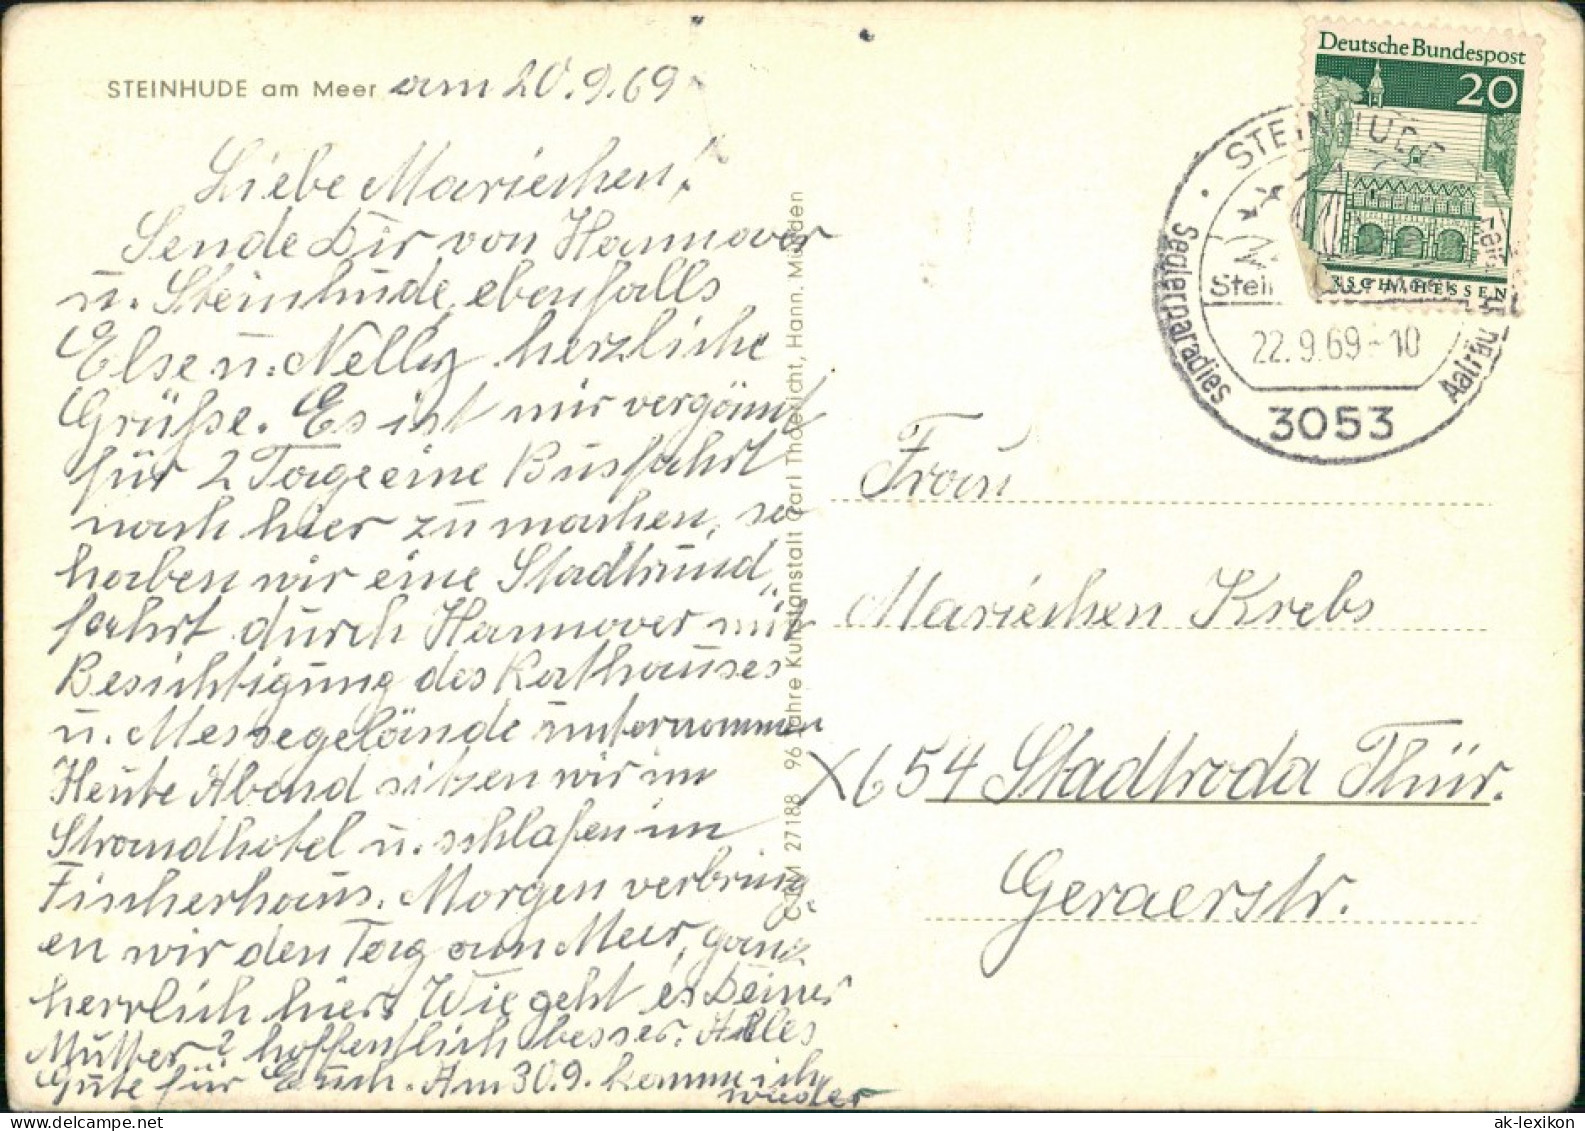 STEINHUDE am Meer am 20.9.69
Liebe Mariechen!
Sende Dir von Hannover
u. Steinhude, ebenfalls
Else u. Nelly herzliche
Grüße. Es ist mir vergönnt
für 2 Tage eine Busfahrt
nach hier zu machen, so
haben wir eine Stadtrund„
fahrt durch Hannover mit
Besichtigung des Rathauses
u. Messegelände unternommen
Heute Abend sitzen wir im
Strandhotel u. schlafen im
Fischerhaus. Morgen verbring„
en wir den Tag am Meer, ganz
herrlich hier. Wie geht es Deiner
Mutter? hoffentlich besser. Alles
Gute für Euch. Am 30.9. komme ich
wieder
CTM 27188 96 Jahre Kunstanstalt Carl Thoericht, Hann. Münden
Deutsche Bundespost
20
LORSCH/HESSEN
STEINHUDE
Seglerparadies
22.9.69-10
3053
Frau
Mariechen Krebs
X654 Stadtroda Thür.
Geraerstr.
ak-lexikon